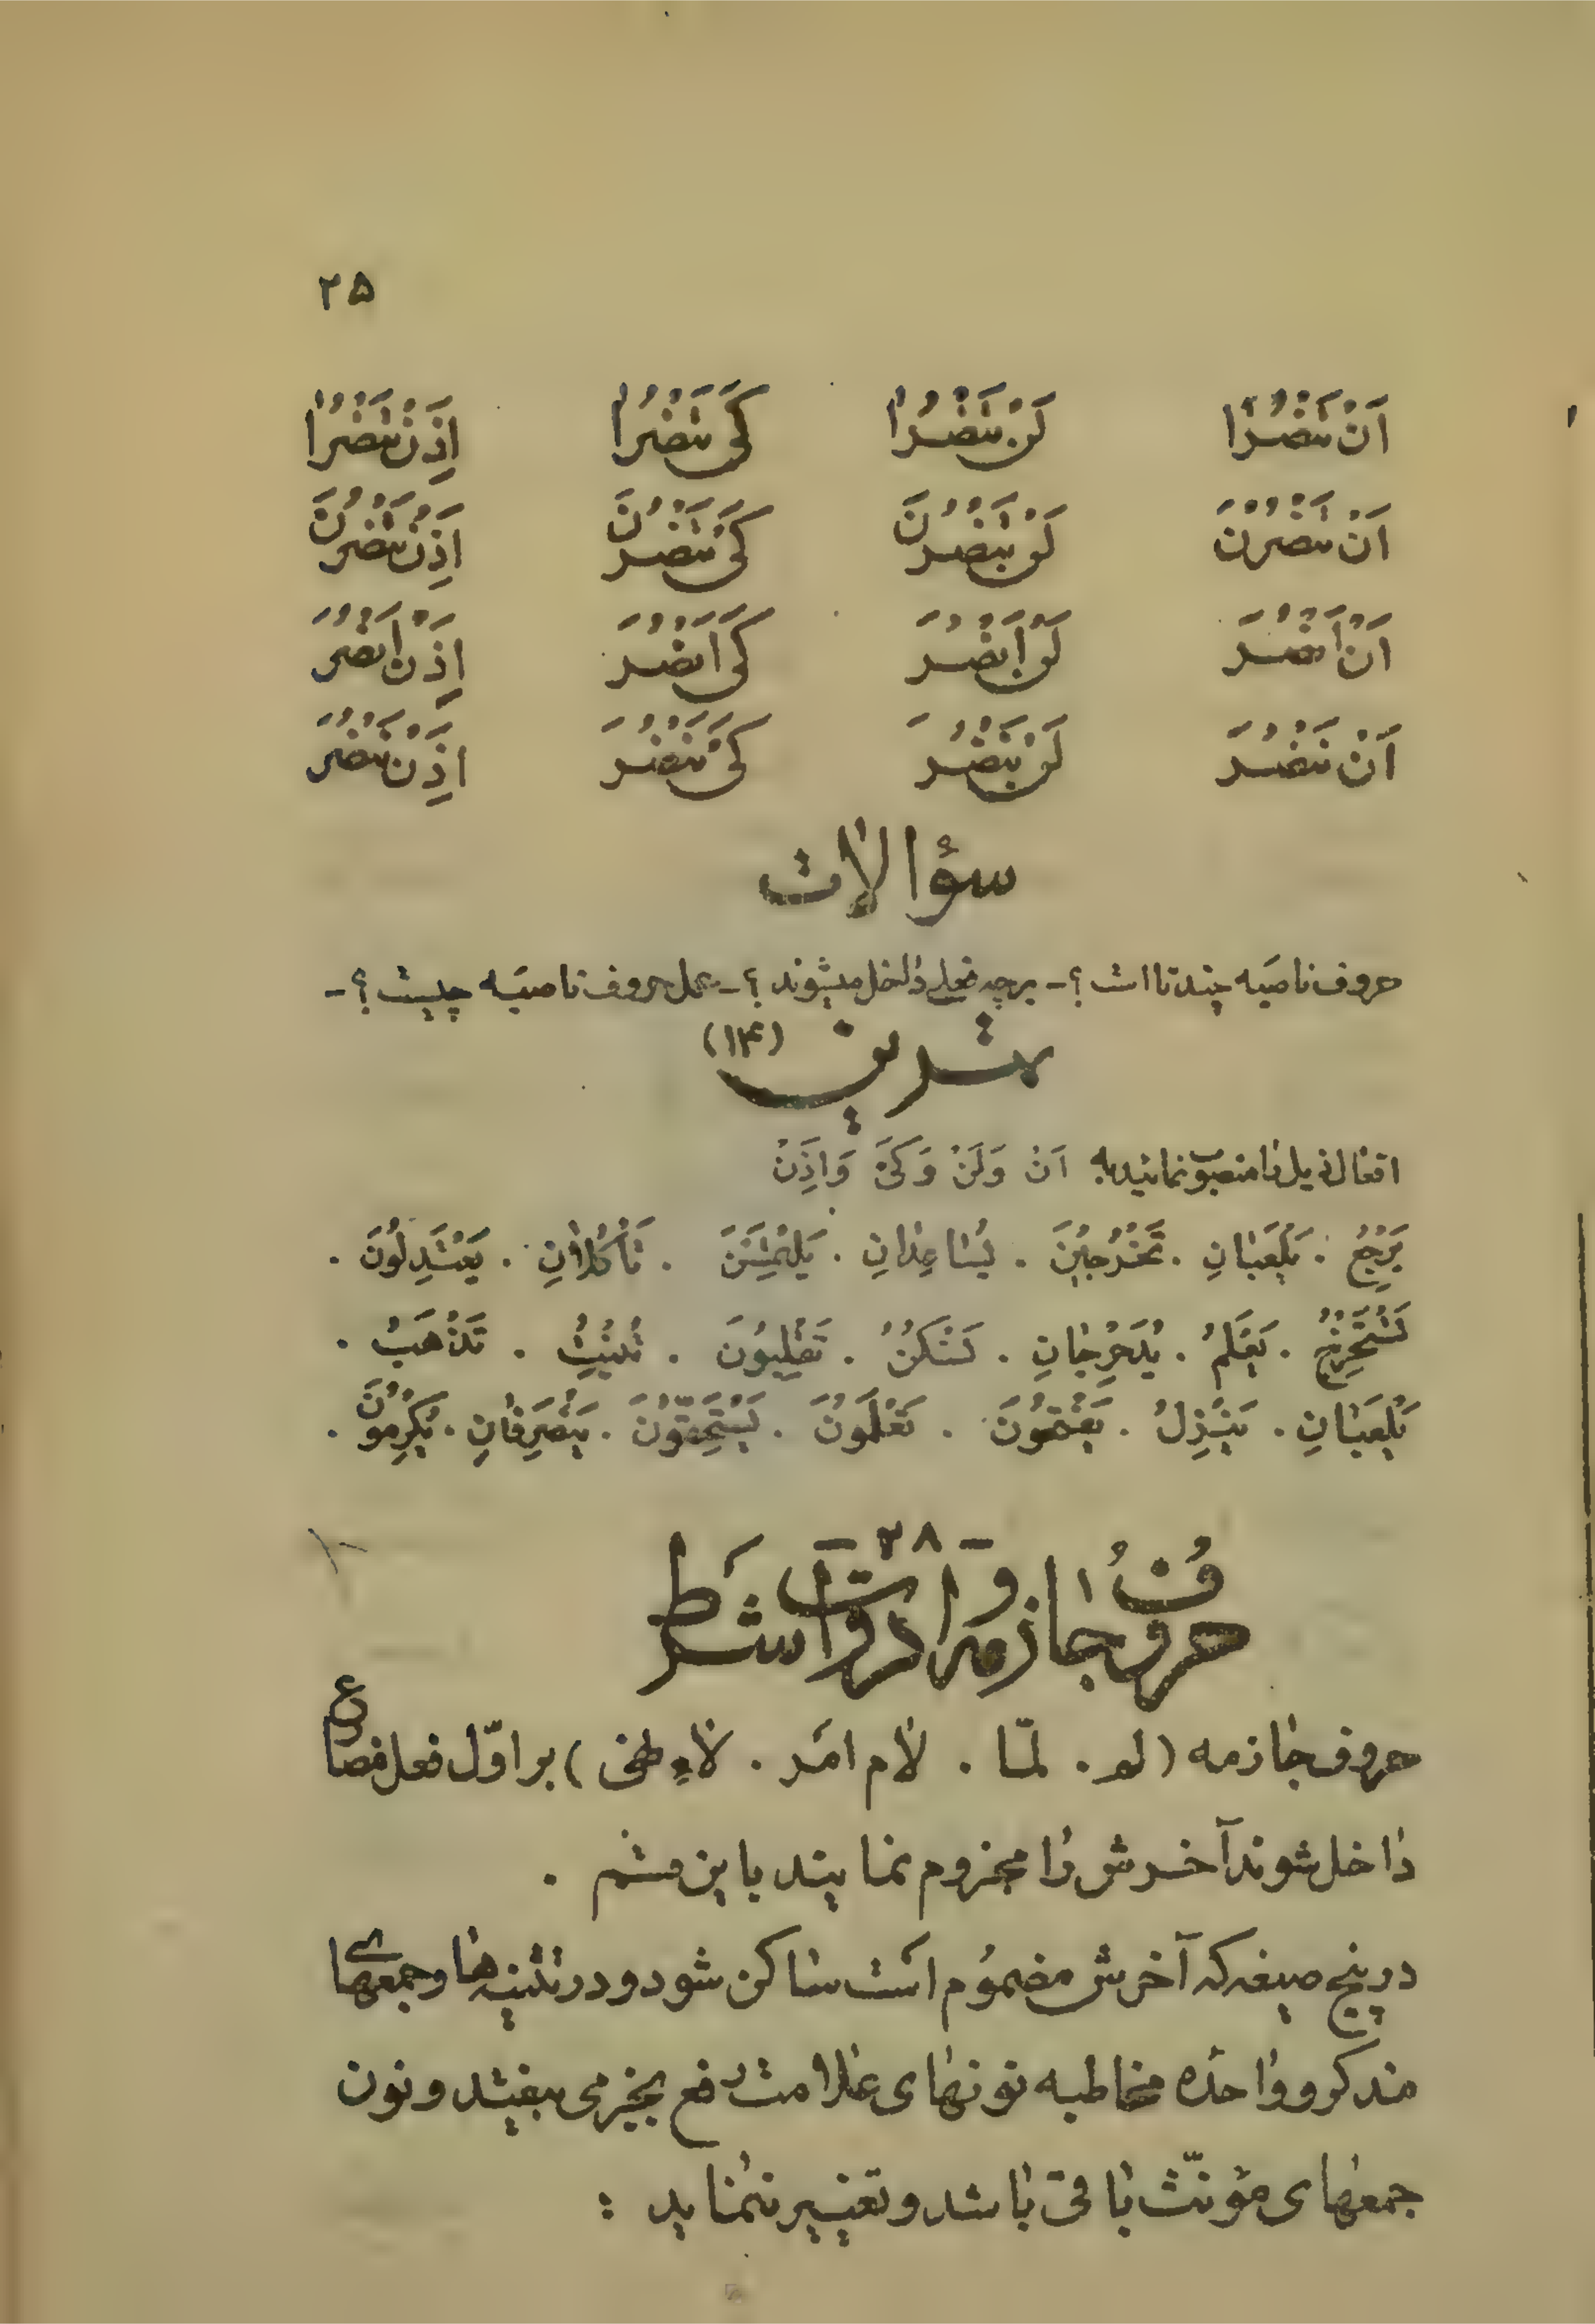 ۲۵
اَنْ تَنْصُرٰا لَنْ تَنْصُرٰا کَیْ تَنْصُرٰا اِذَنْ تَنْصُرٰا
اَنْ تَنْصُرْنَ لَنْ تَنْصُرْنَ کَیْ تَنْصُرْنَ اِذَنْ تَنْصُرْنَ
اَنْ اَنْصُرَ لَنْ اَنْصُرَ کَیْ اَنْصُرَ اِذَنْ اَنْصُرَ
اَنْ نَنْصُرَ لَنْ نَنْصُرَ کَیْ نَنْصُرَ اِذَنْ نَنْصُرَ
سؤالات
حروف ناصبه چند تا است ؟ - بر چه فعلی داخل میشوند ؟ - عمل حروف ناصبه چیست ؟ -
تمرین (۱۴)
افعال ذیل را منصوب نمائید به اَنْ وَلَنْ وَکَیْ وَاِذَنْ
یَرْجِعُ . یَلْعَبٰانِ . تَخْرُجینَ . یُسٰاعِدٰانِ . یَلْتَمِسْنَ . تَأْکُلٰانِ . یَعْتَدِلُونَ .
نَسْتَخْرِجُ . یَعْلَمُ . یُدَحْرِجٰانِ . تَسْکُنُ . تَغْلِبُونَ . تَذْهَبُ .
تَلْعَبٰانِ . یَنْزِلُ . تَعْلَمُونَ . یَسْتَحِقّوُنَ . یَنْصَرِفٰانِ . یُکْرِمُونَ .
- ۲۸ -
حروفُ جٰازمه و ادوات شرط
حروف جازمه ( لم . لمّا . لام امر . لاء نهی ) بر اوّل فعل مضارع
داخل شوند آخرش را مجزوم نمایند باین قسم .
در پنج صیغه که آخرش مضموم است ساکن شود و در تثنیه ها و جمعهای
مذکر و واحده مخاطبه نونهای علامت رفع بجزمی بیفتد و نون
جمعهای مؤنّث باقی باشد و تغییر ننماید :